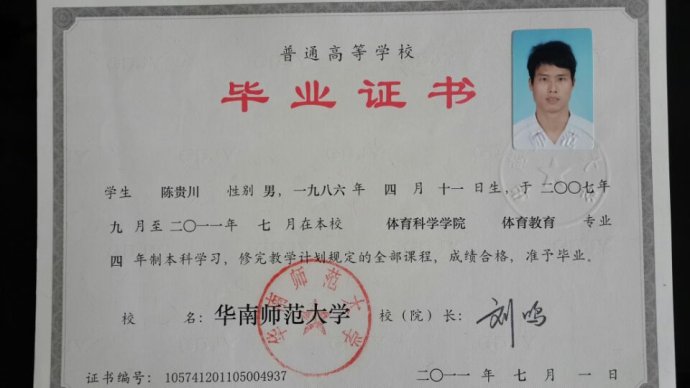 普通高等学校
毕业证书
学生 陈贵川 性别 男，一九八六年 四 月 十一日生，于 二〇〇七年
九 月至 二〇一一年 七 月在本校 体育科学学院 体育教育 专业
四 年制本科学习，修完教学计划规定的全部课程，成绩合格，准予毕业。
校 名：华南师范大学 校（院）长：刘鸣
华南师范大学
证书编号：105741201105004937 二〇一一 年 七 月 一 日